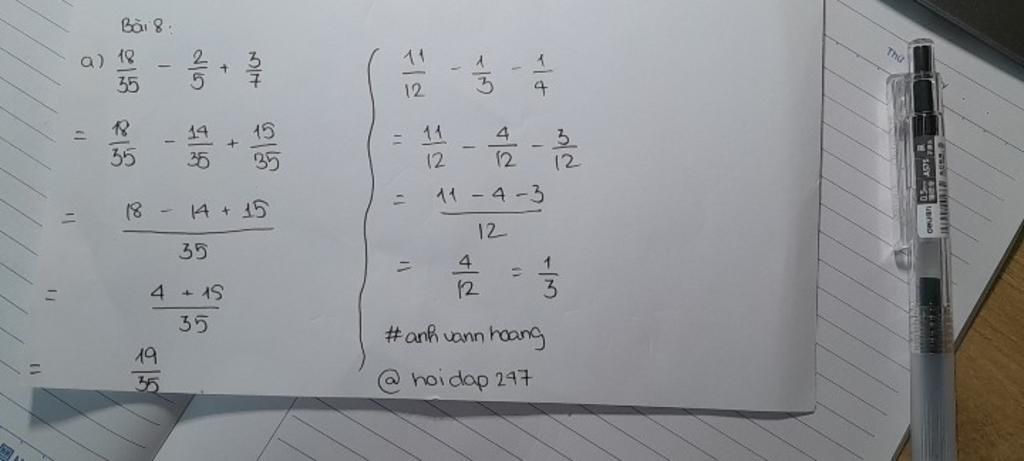 Bài 8:
a) 18/35 - 2/5 + 3/7
= 18/35 - 14/35 + 15/35
= (18 - 14 + 15)/35
= (4 + 15)/35
= 19/35
11/12 - 1/3 - 1/4
= 11/12 - 4/12 - 3/12
= (11 - 4 - 3)/12
= 4/12 = 1/3
#anhvannhoang
@hoidap247
Thứ